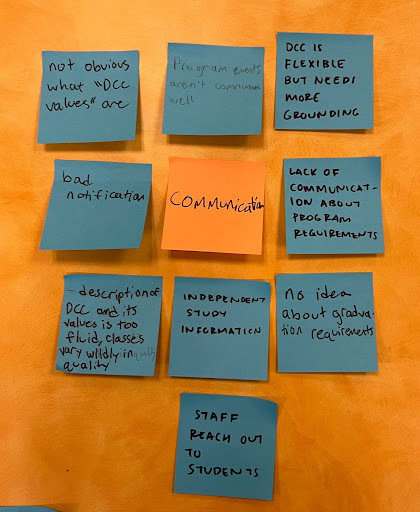 not obvious
what "DCC
values" are
Program events
aren't communicated
well
DCC IS
FLEXIBLE
BUT NEEDS
MORE
GROUNDING
bad
notification
COMMUNICation
LACK OF
COMMUNICAT-
ION ABOUT
PROGRAM
REQUIREMENTS
- description of
DCC and its
values is too
fluid, classes
vary wildly in
quality
INDEPENDENT
STUDY
INFORMATION
no idea
about gradua-
tion requirements
STAFF
REACH OUT
TO
STUDENTS